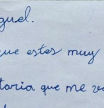 guel.
que estes muy
toria que me va